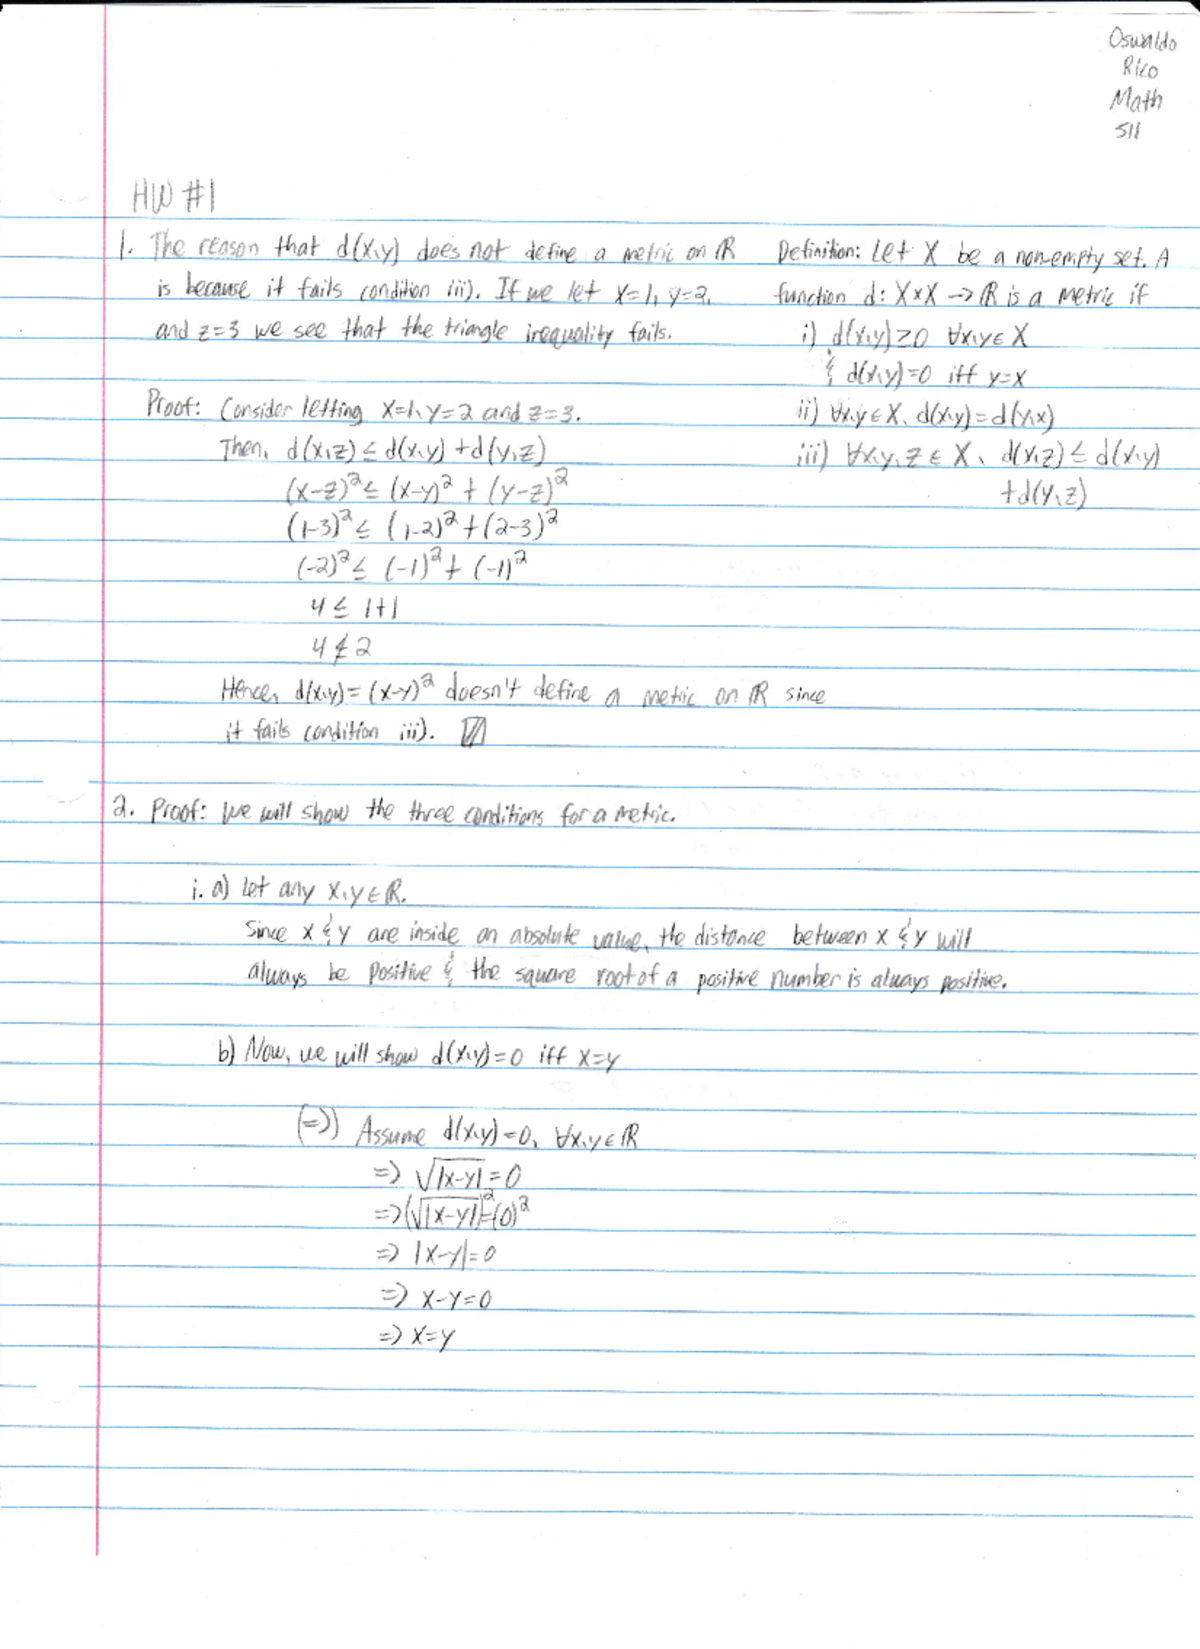 Oswaldo
Rico
Math
511
HW #1
1. The reason that d(x,y) does not define a metric on ℝ
is because it fails condition iii). If we let x=1, y=2,
and z=3 we see that the triangle inequality fails.
Definition: Let X be a non-empty set. A
function d: X×X → ℝ is a metric if
i) d(x,y)≥0 ∀x,y∈X
& d(x,y)=0 iff y=x
ii) ∀x,y∈X, d(x,y)=d(y,x)
iii) ∀x,y,z∈X, d(x,z)≤d(x,y)
+d(y,z)
Proof: Consider letting x=1, y=2 and z=3.
Then, d(x,z)≤d(x,y)+d(y,z)
(x-z)²≤(x-y)²+(y-z)²
(1-3)²≤(1-2)²+(2-3)²
(-2)²≤(-1)²+(-1)²
4≤1+1
4≰2
Hence, d(x,y)=(x-y)² doesn't define a metric on ℝ since
it fails condition iii).
2. Proof: We will show the three conditions for a metric.
i. a) Let any x,y∈ℝ.
Since x & y are inside an absolute value, the distance between x & y will
always be positive & the square root of a positive number is always positive.
b) Now, we will show d(x,y)=0 iff x=y
(⇒) Assume d(x,y)=0, ∀x,y∈ℝ
⇒ √|x-y|=0
⇒(√|x-y|)²=(0)²
⇒ |x-y|=0
⇒ x-y=0
⇒ x=y